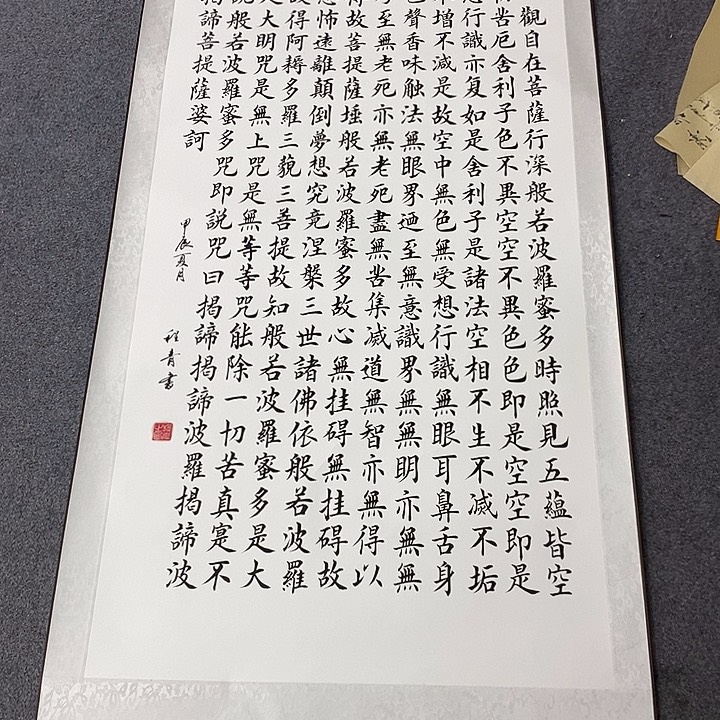 觀自在菩薩行深般若波羅蜜多時照見五蘊皆空
苦厄舍利子色不異空空不異色色即是空空即是
行識亦复如是舍利子是諸法空相不生不滅不垢
增不減是故空中無色無受想行識無眼耳鼻舌身
色聲香味触法無眼界迺至無意識界無無明亦無無
至無老死亦無老死盡無苦集滅道無智亦無得以
得故菩提薩埵般若波羅蜜多故心無挂碍無挂碍故
恐怖遠離顛倒夢想究竟涅槃三世諸佛依般若波羅
故得阿耨多羅三藐三菩提故知般若波羅蜜多是大
是大明咒是無上咒是無等等咒能除一切苦真寔不
說般若波羅蜜多咒即說咒曰揭諦揭諦波羅揭諦波
揭諦菩提薩婆訶
甲辰夏月
程青書